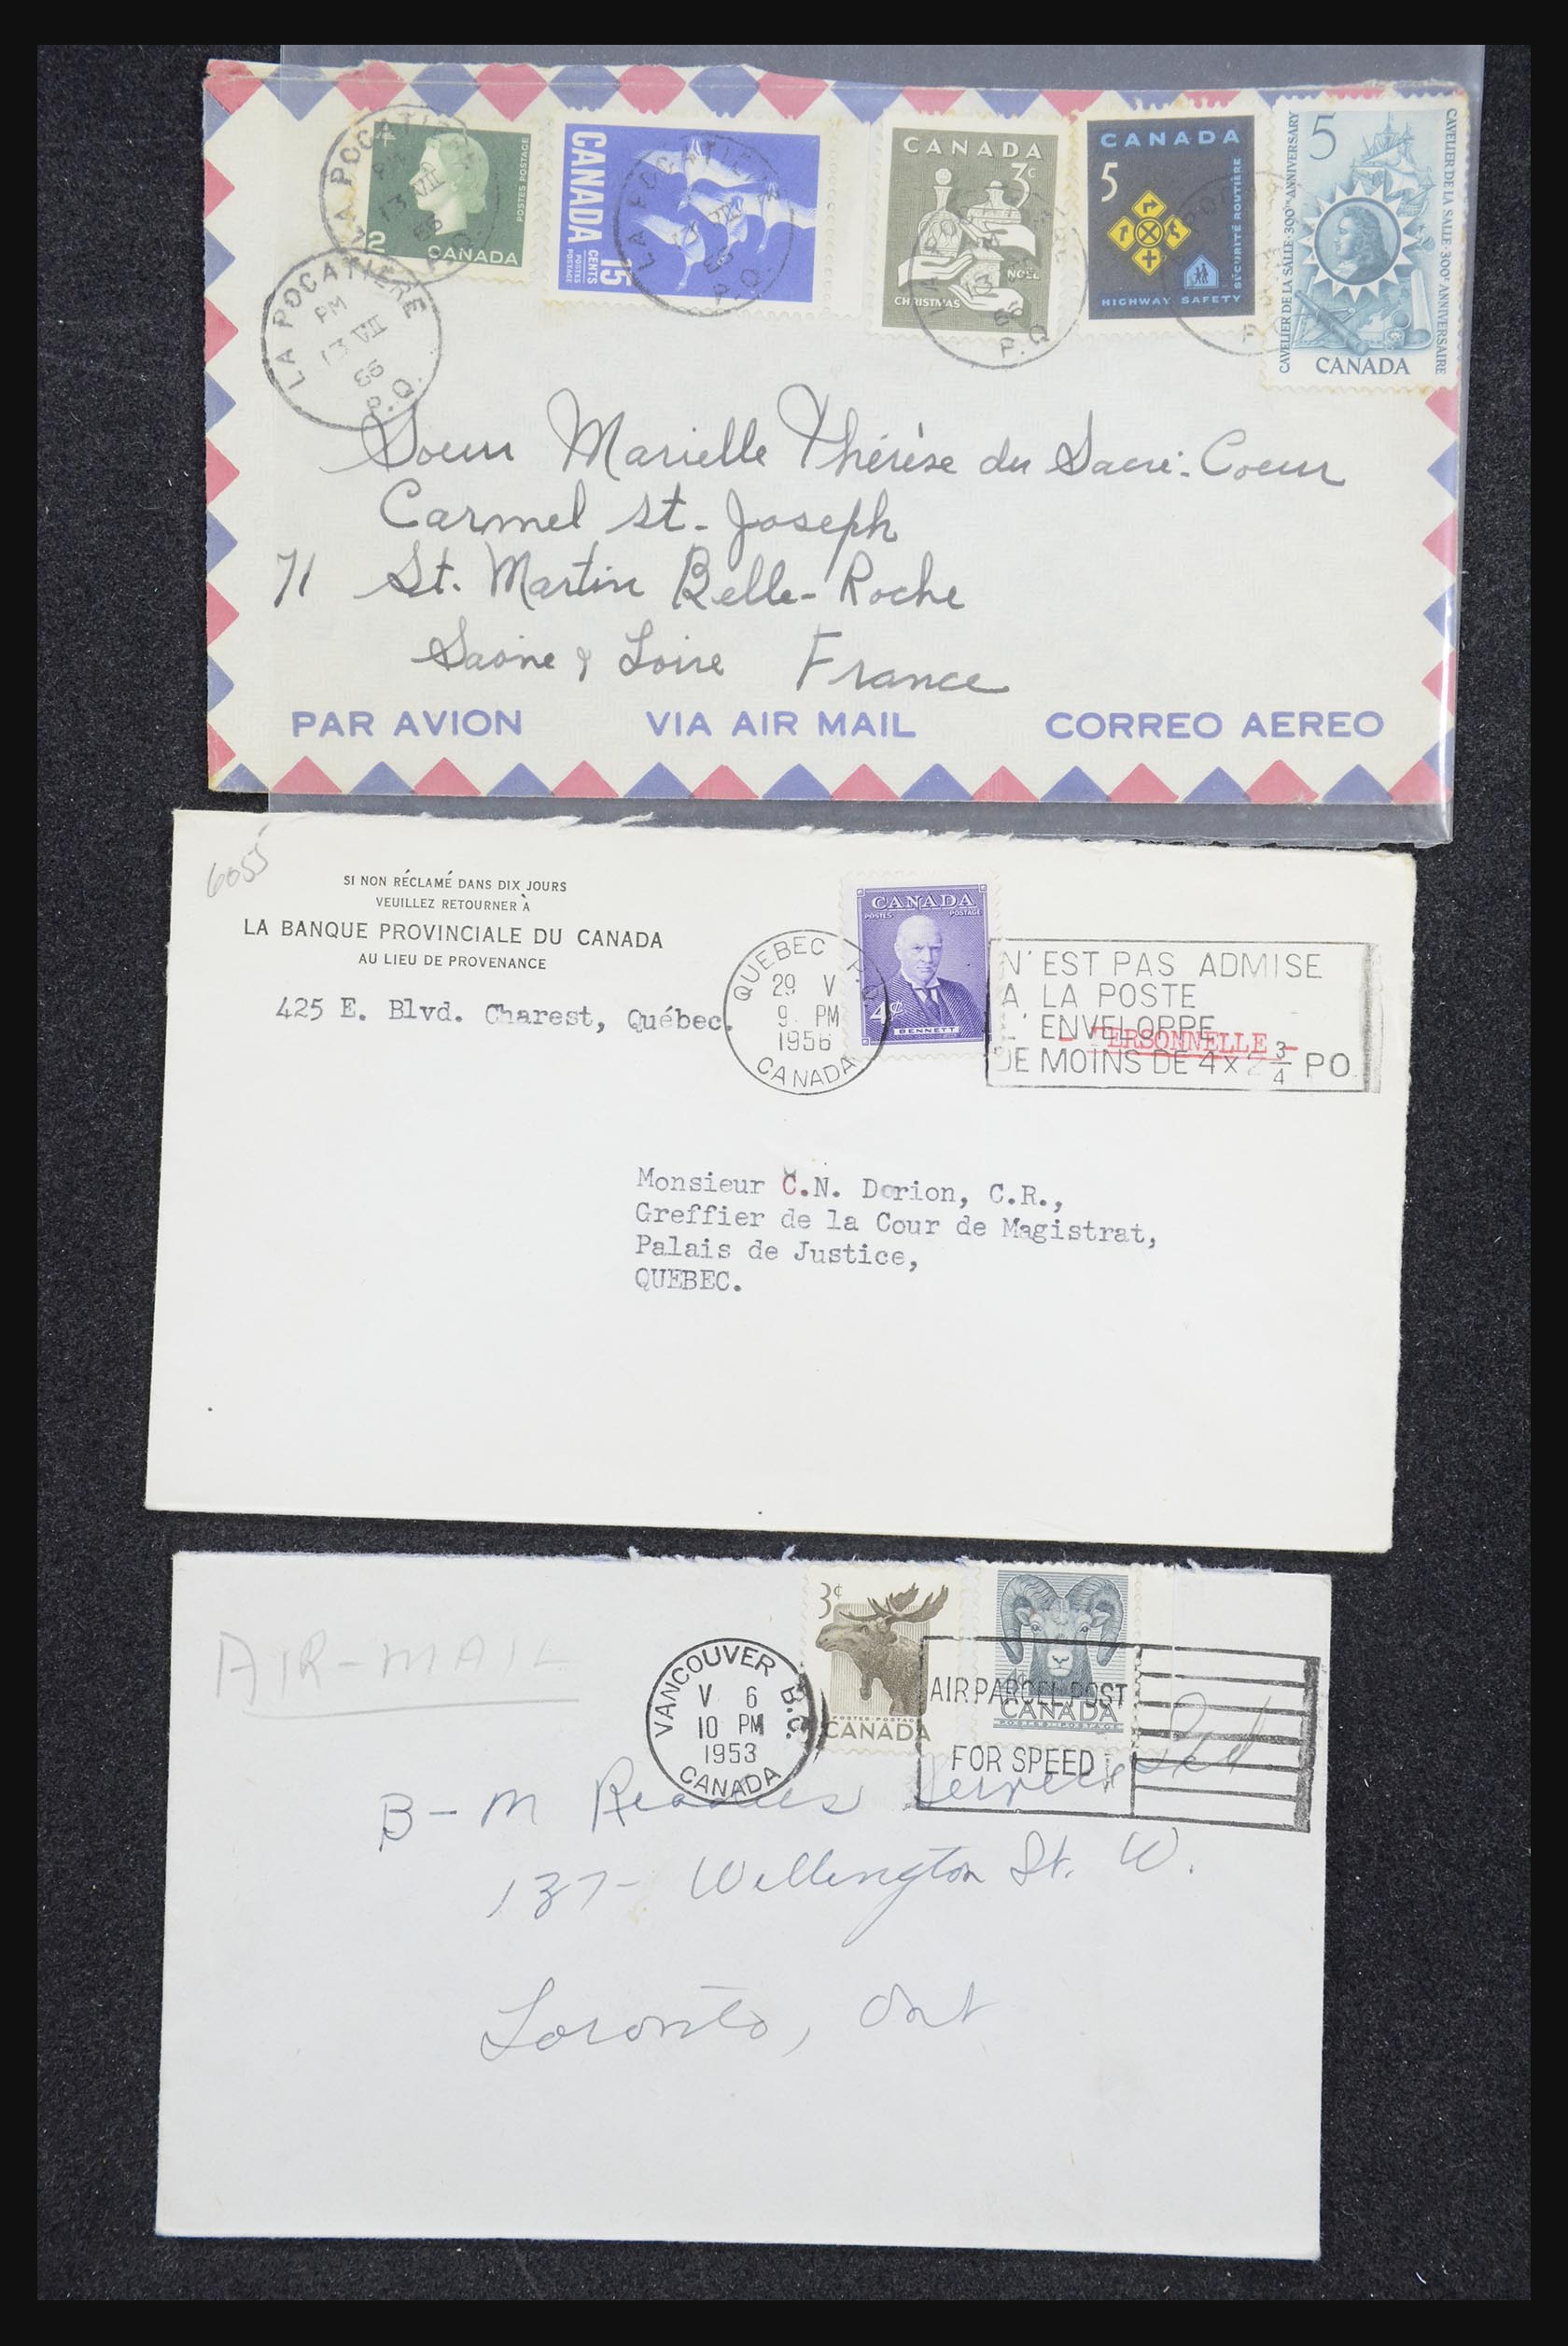 2
POSTES POSTAGE
CANADA
CANADA
15
CENTS
POSTES
POSTAGE
CANADA
3c
NOËL
CHRISTMAS
CANADA
5
SÉCURITÉ ROUTIÈRE
HIGHWAY SAFETY
5
CAVELIER DE LA SALLE·300TH ANNIVERSARY
CAVELIER DE LA SALLE·300E ANNIVERSAIRE
CANADA
LA POCATIÈRE
PM
13 VII
66
P.Q.
Soeur Marielle Thérèse du Sacré-Coeur
Carmel St-Joseph
71 St. Martin Belle-Roche
Saône & Loire France
PAR AVION VIA AIR MAIL CORREO AEREO
6055
SI NON RÉCLAMÉ DANS DIX JOURS
VEUILLEZ RETOURNER À
LA BANQUE PROVINCIALE DU CANADA
AU LIEU DE PROVENANCE
425 E. Blvd. Charest, Québec.
QUEBEC P.Q.
29 V
9 PM
1956
CANADA
CANADA
POSTES POSTAGE
4¢
BENNETT
N'EST PAS ADMISE
A LA POSTE
L'ENVELOPPE
- PERSONNELLE -
DE MOINS DE 4 x 2 3/4 PO.
Monsieur C.N. Dorion, C.R.,
Greffier de la Cour de Magistrat,
Palais de Justice,
QUEBEC.
AIR-MAIL
VANCOUVER B.C.
V 6
10 PM
1953
CANADA
3¢
POSTES·POSTAGE
CANADA
4¢
CANADA
POSTES·POSTAGE
AIR PARCEL POST
FOR SPEED
B-M Readers Service Ltd
137- Wellington St. W.
Toronto, Ont